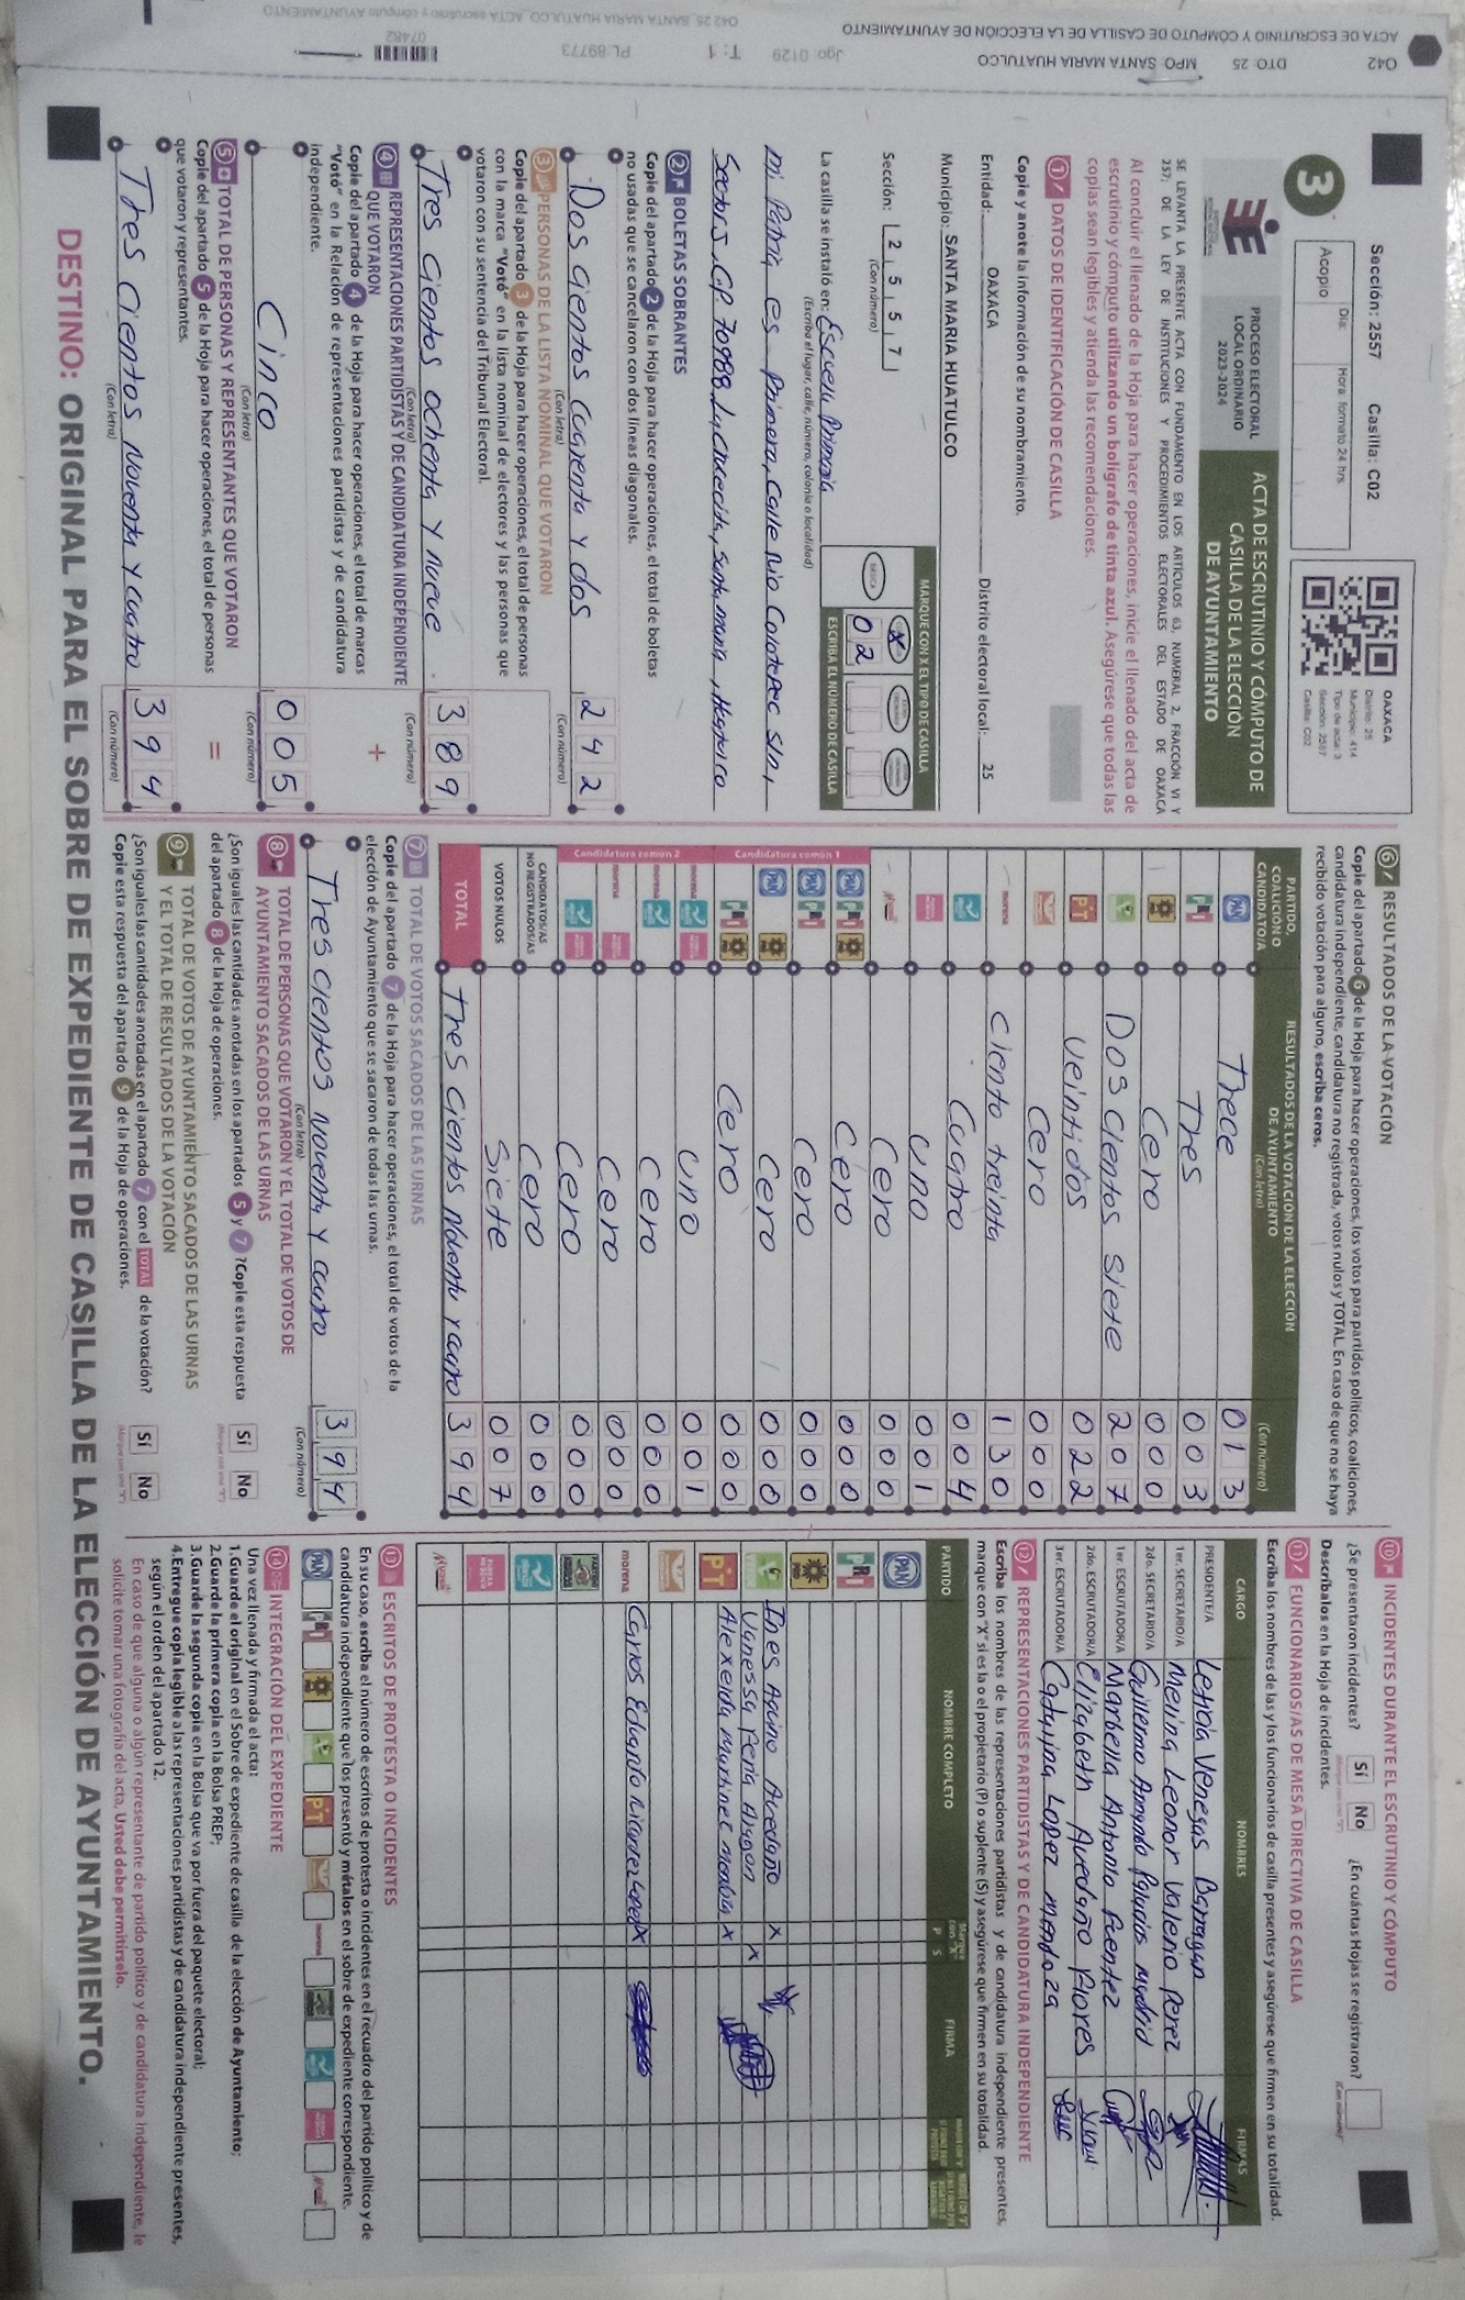 ACTA DE ESCRUTINIO Y CÓMPUTO DE CASILLA DE LA ELECCIÓN DE AYUNTAMIENTO
042 DTO: 25 MPO: SANTA MARIA HUATULCO Jgo: 0129 T: 1 PL:89773
042 25 SANTA MARIA HUATULCO ACTA escrutinio y cómputo AYUNTAMIENTO
07482
Sección: 2557 Casilla: C02
Acopio Día: Hora: formato 24 hrs.
OAXACA
Distrito: 25
Municipio: 414
Tipo de acta: 3
Sección: 2557
Casilla: C02
3
PROCESO ELECTORAL
LOCAL ORDINARIO
2023-2024
ACTA DE ESCRUTINIO Y CÓMPUTO DE
CASILLA DE LA ELECCIÓN
DE AYUNTAMIENTO
SE LEVANTA LA PRESENTE ACTA CON FUNDAMENTO EN LOS ARTÍCULOS 63, NUMERAL 2, FRACCIÓN VI Y
257; DE LA LEY DE INSTITUCIONES Y PROCEDIMIENTOS ELECTORALES DEL ESTADO DE OAXACA
Al concluir el llenado de la Hoja para hacer operaciones, inicie el llenado del acta de
escrutinio y cómputo utilizando un bolígrafo de tinta azul. Asegúrese que todas las
copias sean legibles y atienda las recomendaciones.
1 DATOS DE IDENTIFICACIÓN DE CASILLA
Copie y anote la información de su nombramiento.
Entidad: OAXACA Distrito electoral local: 25
Municipio: SANTA MARIA HUATULCO
Sección: 2 5 5 7
(Con número)
MARQUE CON X EL TIPO DE CASILLA
BÁSICA X
0 2
ESCRIBA EL NÚMERO DE CASILLA
La casilla se instaló en: Escuela Primaria
(Escriba el lugar, calle, número, colonia o localidad)
Mi Patria es Primero, Calle Rio Colotepec S/n,
Sector J, C.P. 70988 La Crucecita, Santa maria, Huatulco
2 BOLETAS SOBRANTES
Copie del apartado 2 de la Hoja para hacer operaciones, el total de boletas
no usadas que se cancelaron con dos líneas diagonales.
Dos cientos cuarenta y dos 2 4 2
(Con letra) (Con número)
3 PERSONAS DE LA LISTA NOMINAL QUE VOTARON
Copie del apartado 3 de la Hoja para hacer operaciones, el total de personas
con la marca "Votó" en la lista nominal de electores y las personas que
votaron con su sentencia del Tribunal Electoral.
Tres cientos ochenta y nueve 3 8 9
(Con letra) (Con número)
4 REPRESENTACIONES PARTIDISTAS Y DE CANDIDATURA INDEPENDIENTE
QUE VOTARON
Copie del apartado 4 de la Hoja para hacer operaciones, el total de marcas
"Votó" en la Relación de representaciones partidistas y de candidatura
independiente.
+
Cinco 0 0 5
(Con letra) (Con número)
5 TOTAL DE PERSONAS Y REPRESENTANTES QUE VOTARON
Copie del apartado 5 de la Hoja para hacer operaciones, el total de personas
que votaron y representantes.
=
Tres cientos Noventa y cuatro 3 9 4
(Con letra) (Con número)
6 RESULTADOS DE LA VOTACIÓN
Copie del apartado 6 de la Hoja para hacer operaciones, los votos para partidos políticos, coaliciones,
candidatura independiente, candidatura no registrada, votos nulos y TOTAL. En caso de que no se haya
recibido votación para alguno, escriba ceros.
PARTIDO, COALICIÓN O CANDIDATO/A
RESULTADOS DE LA VOTACIÓN DE LA ELECCIÓN DE AYUNTAMIENTO
(Con letra) (Con número)
PAN Trece 0 1 3
PRI Tres 0 0 3
Cero 0 0 0
Dos cientos siete 2 0 7
PT Veintidos 0 2 2
Cero 0 0 0
morena Ciento treinta 1 3 0
Cuatro 0 0 4
Uno 0 0 1
Cero 0 0 0
Candidatura común 1
PAN PRI Cero 0 0 0
PAN PRI Cero 0 0 0
PAN Cero 0 0 0
PRI Cero 0 0 0
Candidatura común 2
morena Uno 0 0 1
morena Cero 0 0 0
morena Cero 0 0 0
Cero 0 0 0
CANDIDATOS/AS NO REGISTRADOS/AS Cero 0 0 0
VOTOS NULOS Siete 0 0 7
TOTAL Tres cientos Noventa y cuatro 3 9 4
7 TOTAL DE VOTOS SACADOS DE LAS URNAS
Copie del apartado 7 de la Hoja para hacer operaciones, el total de votos de la
elección de Ayuntamiento que se sacaron de todas las urnas.
Tres cientos noventa y cuatro 3 9 4
(Con letra) (Con número)
8 TOTAL DE PERSONAS QUE VOTARON Y EL TOTAL DE VOTOS DE
AYUNTAMIENTO SACADOS DE LAS URNAS
¿Son iguales las cantidades anotadas en los apartados 5 y 7 ? Copie esta respuesta
del apartado 8 de la Hoja de operaciones.
Sí No
9 TOTAL DE VOTOS DE AYUNTAMIENTO SACADOS DE LAS URNAS
Y EL TOTAL DE RESULTADOS DE LA VOTACIÓN
¿Son iguales las cantidades anotadas en el apartado 7 con el TOTAL de la votación?
Copie esta respuesta del apartado 9 de la Hoja de operaciones.
Sí No
10 INCIDENTES DURANTE EL ESCRUTINIO Y CÓMPUTO
¿Se presentaron incidentes? Sí No ¿En cuántas Hojas se registraron?
(Con número)
Descríbalos en la Hoja de incidentes.
11 FUNCIONARIOS/AS DE MESA DIRECTIVA DE CASILLA
Escriba los nombres de las y los funcionarios de casilla presentes y asegúrese que firmen en su totalidad.
CARGO NOMBRES FIRMAS
PRESIDENTE/A Leticia Venegas Barragan
1er. SECRETARIO/A Melina Leonor Valerio Perez
2do. SECRETARIO/A Guillermo Amando Palacios Madrid
1er. ESCRUTADOR/A Marbella Antonio Fuentez
2do. ESCRUTADOR/A Elizabeth Avedaño Flores
3er. ESCRUTADOR/A Catalina Lopez mendoza
12 REPRESENTACIONES PARTIDISTAS Y DE CANDIDATURA INDEPENDIENTE
Escriba los nombres de las representaciones partidistas y de candidatura independiente presentes,
marque con "X" si es la o el propietario (P) o suplente (S) y asegúrese que firmen en su totalidad.
PARTIDO NOMBRE COMPLETO Marque con "X" P S FIRMA
PAN
PRI
Ines Aquino Avedaño X
Vanessa Peria Aragon X
PT Alexeida Martinez X
morena Carlos Eduardo X
13 ESCRITOS DE PROTESTA O INCIDENTES
En su caso, escriba el número de escritos de protesta o incidentes en el recuadro del partido político y de
candidatura independiente que los presentó y métalos en el sobre de expediente correspondiente.
PAN PRI PT morena
14 INTEGRACIÓN DEL EXPEDIENTE
Una vez llenada y firmada el acta:
1.Guarde el original en el Sobre de expediente de casilla de la elección de Ayuntamiento;
2.Guarde la primera copia en la Bolsa PREP;
3.Guarde la segunda copia en la Bolsa que va por fuera del paquete electoral;
4.Entregue copia legible a las representaciones partidistas y de candidatura independiente presentes,
según el orden del apartado 12.
En caso de que alguna o algún representante de partido político y de candidatura independiente, le
solicite tomar una fotografía del acta, Usted debe permitírselo.
DESTINO: ORIGINAL PARA EL SOBRE DE EXPEDIENTE DE CASILLA DE LA ELECCIÓN DE AYUNTAMIENTO.